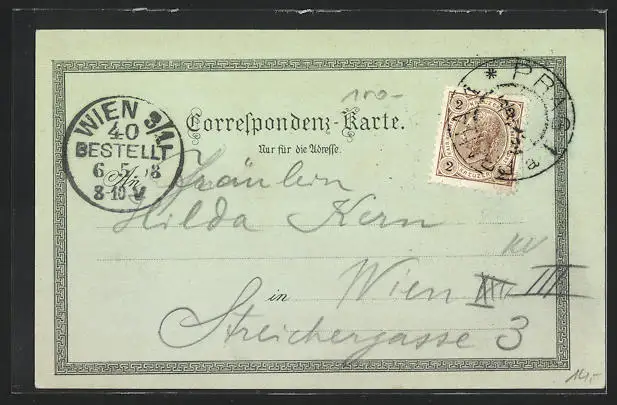 WIEN 3/1
40
BESTELLT
6 5 8
8-10 V
* PRAG
100-
Correspondenz-Karte.
Nur für die Adresse.
2
2
An Fräulein
Hilda Kern
in Wien III
Streichergasse 3
14,-